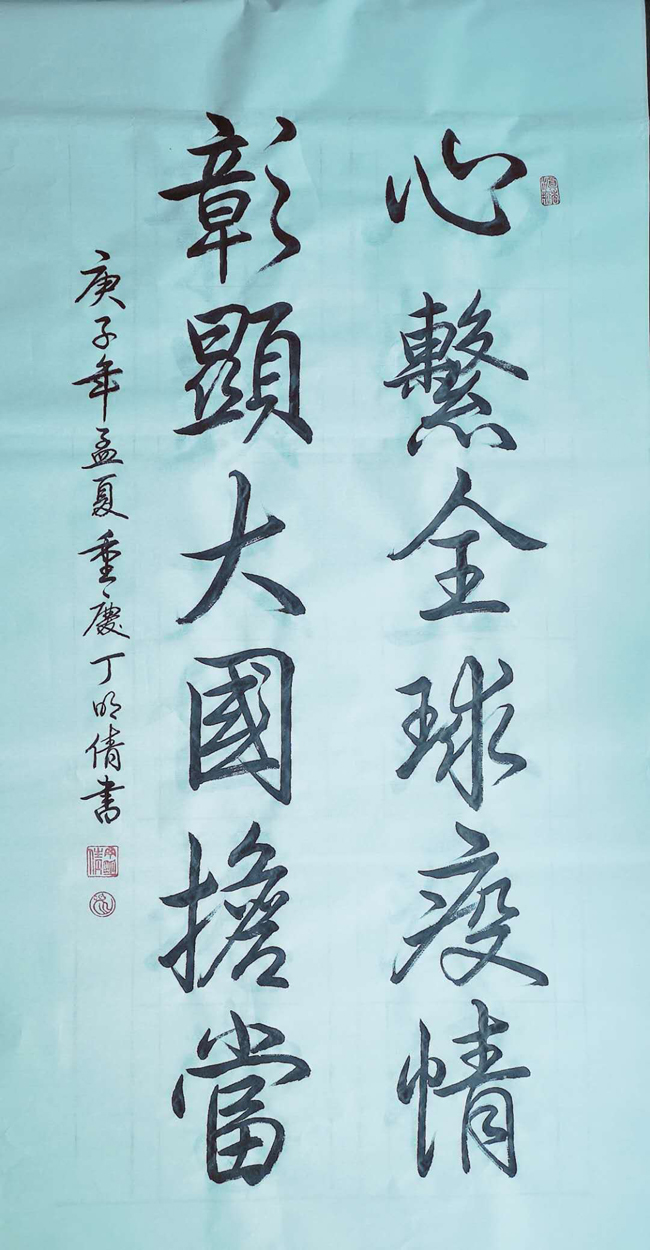 心繫全球疫情
彰顯大國擔當
庚子年孟夏重慶丁明倩書